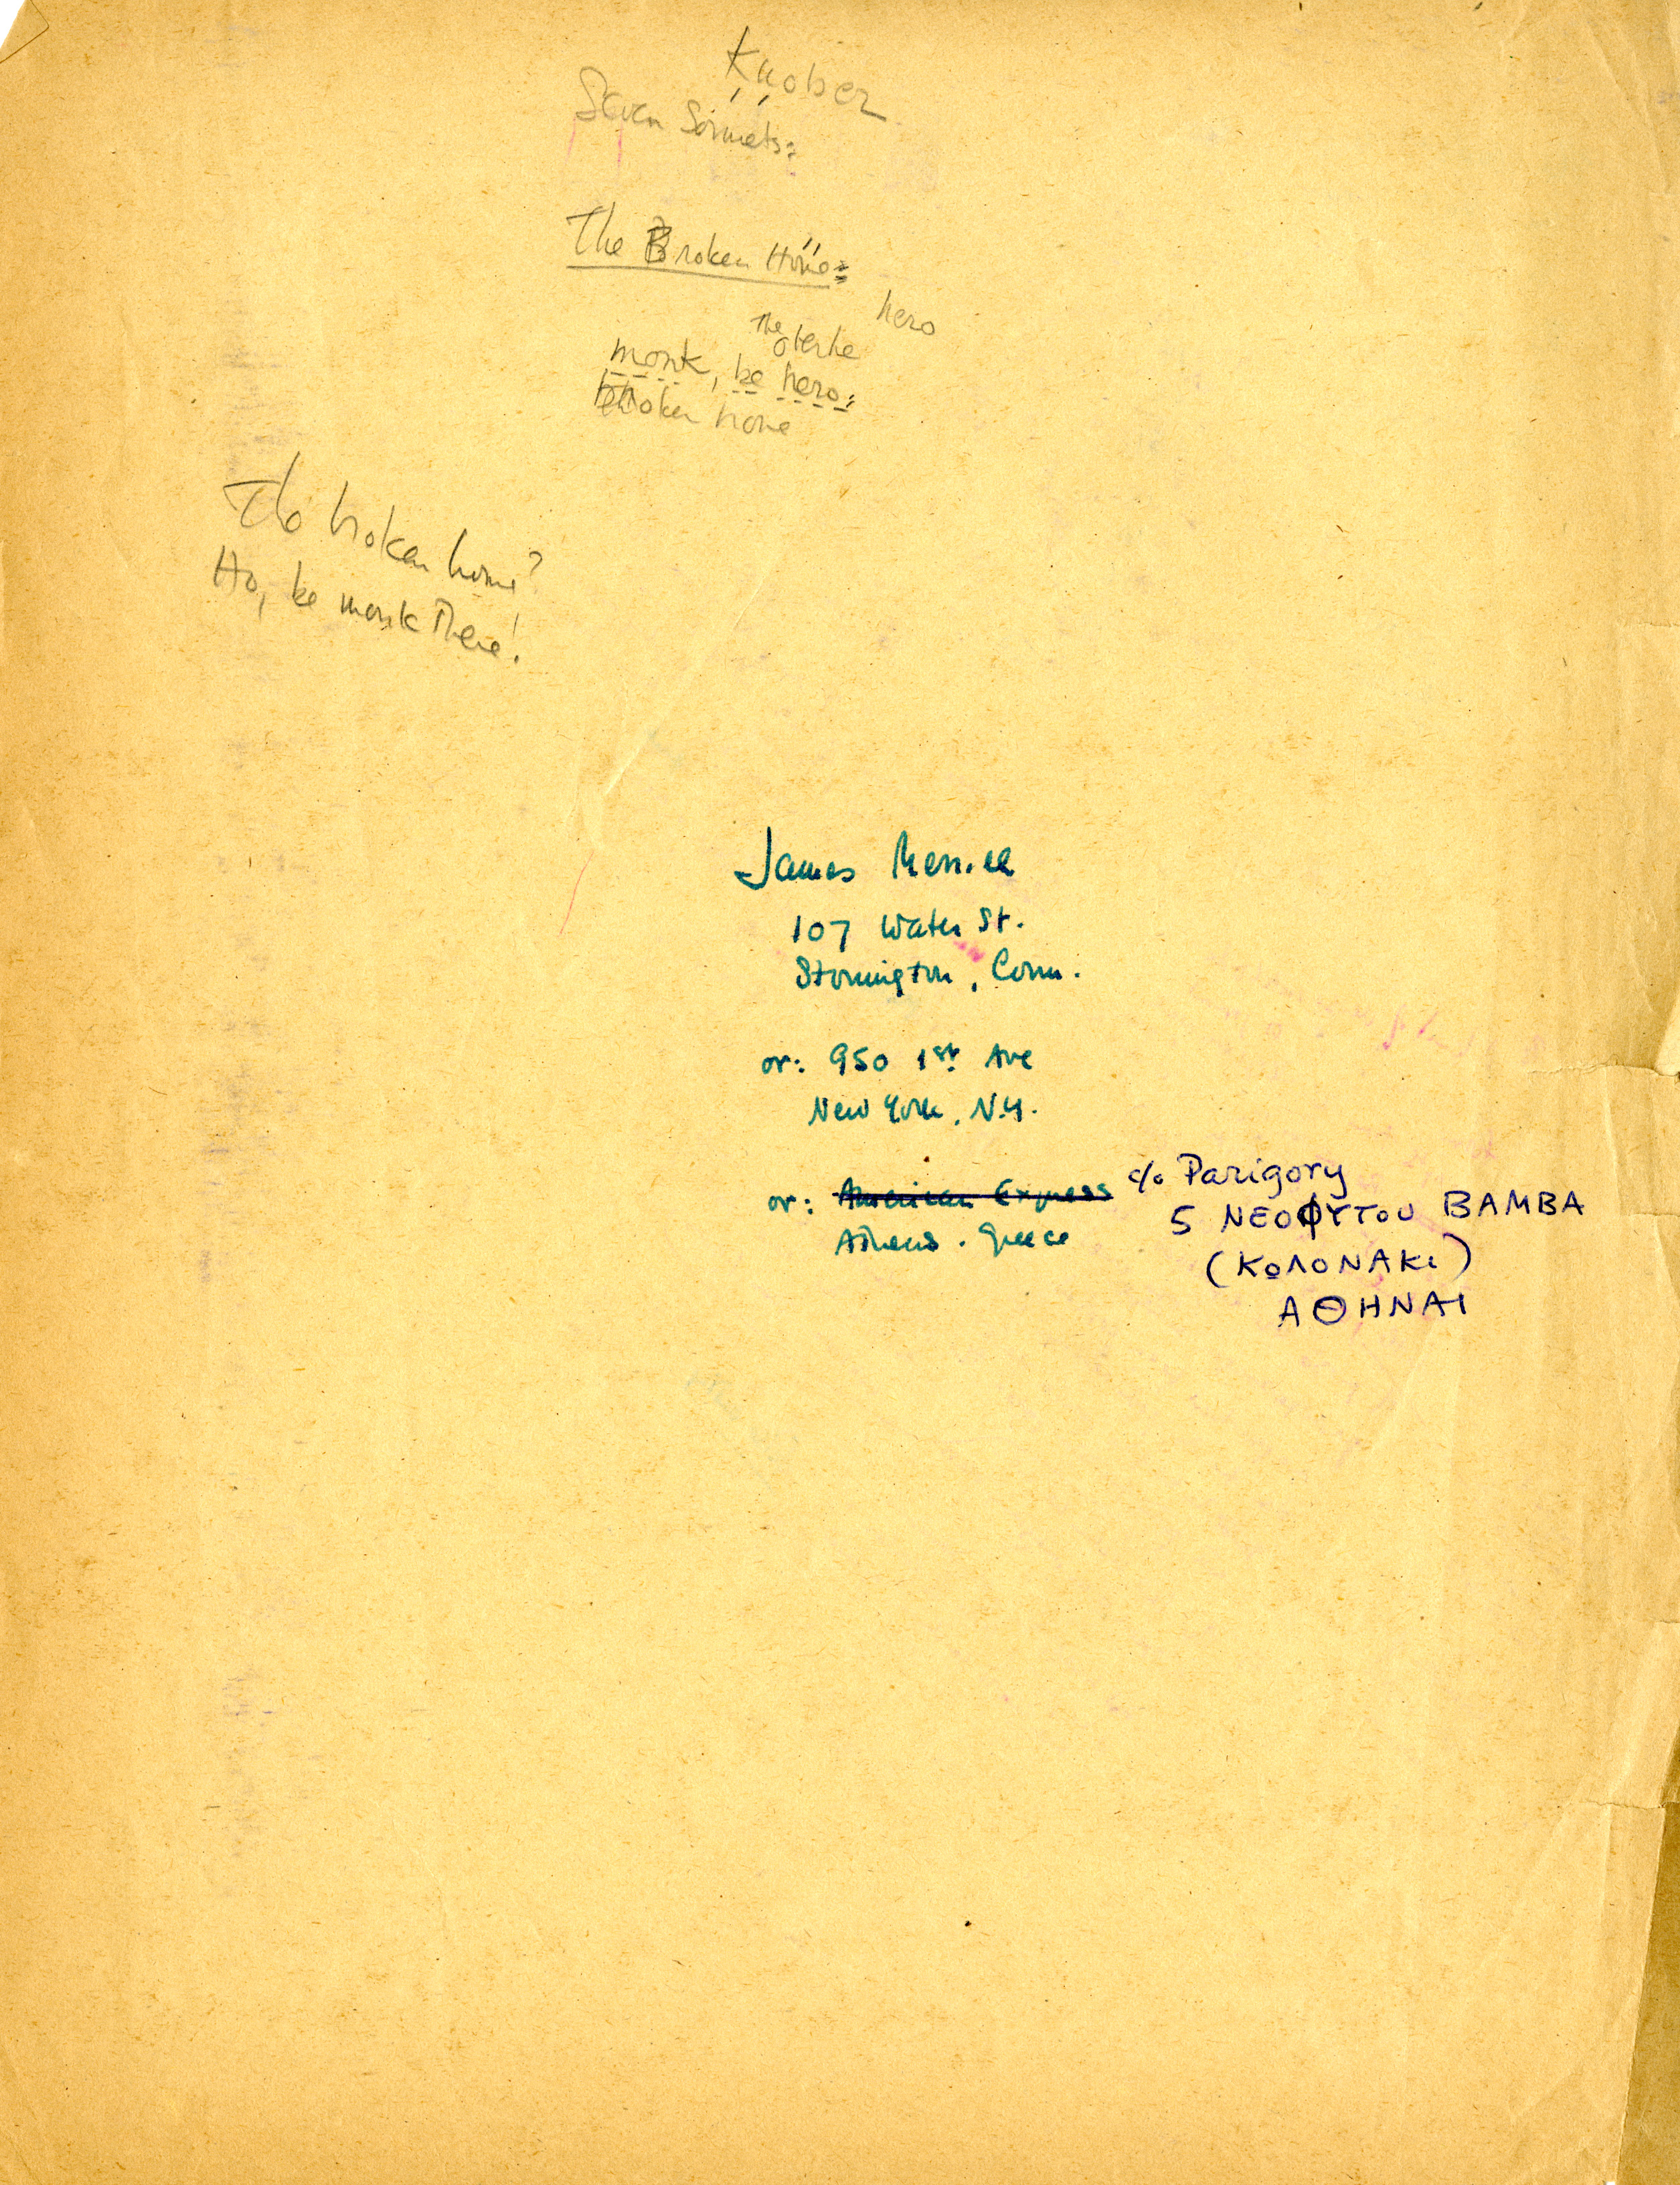 Knober
Seven Sonnets:
The Broken Home:
hero
the
oterhe
monk, be hero:
broken home
The broken home?
Ho, be monk there!
James Merrill
107 Water St.
Stonington, Conn.
or: 950 1st Ave
New York, N.Y.
or: American Express c/o Parigory
Athens. Greece
5 ΝΕΟΦΥΤΟΥ ΒΑΜΒΑ
(ΚΟΛΟΝΑΚι)
ΑΘΗΝΑΙ